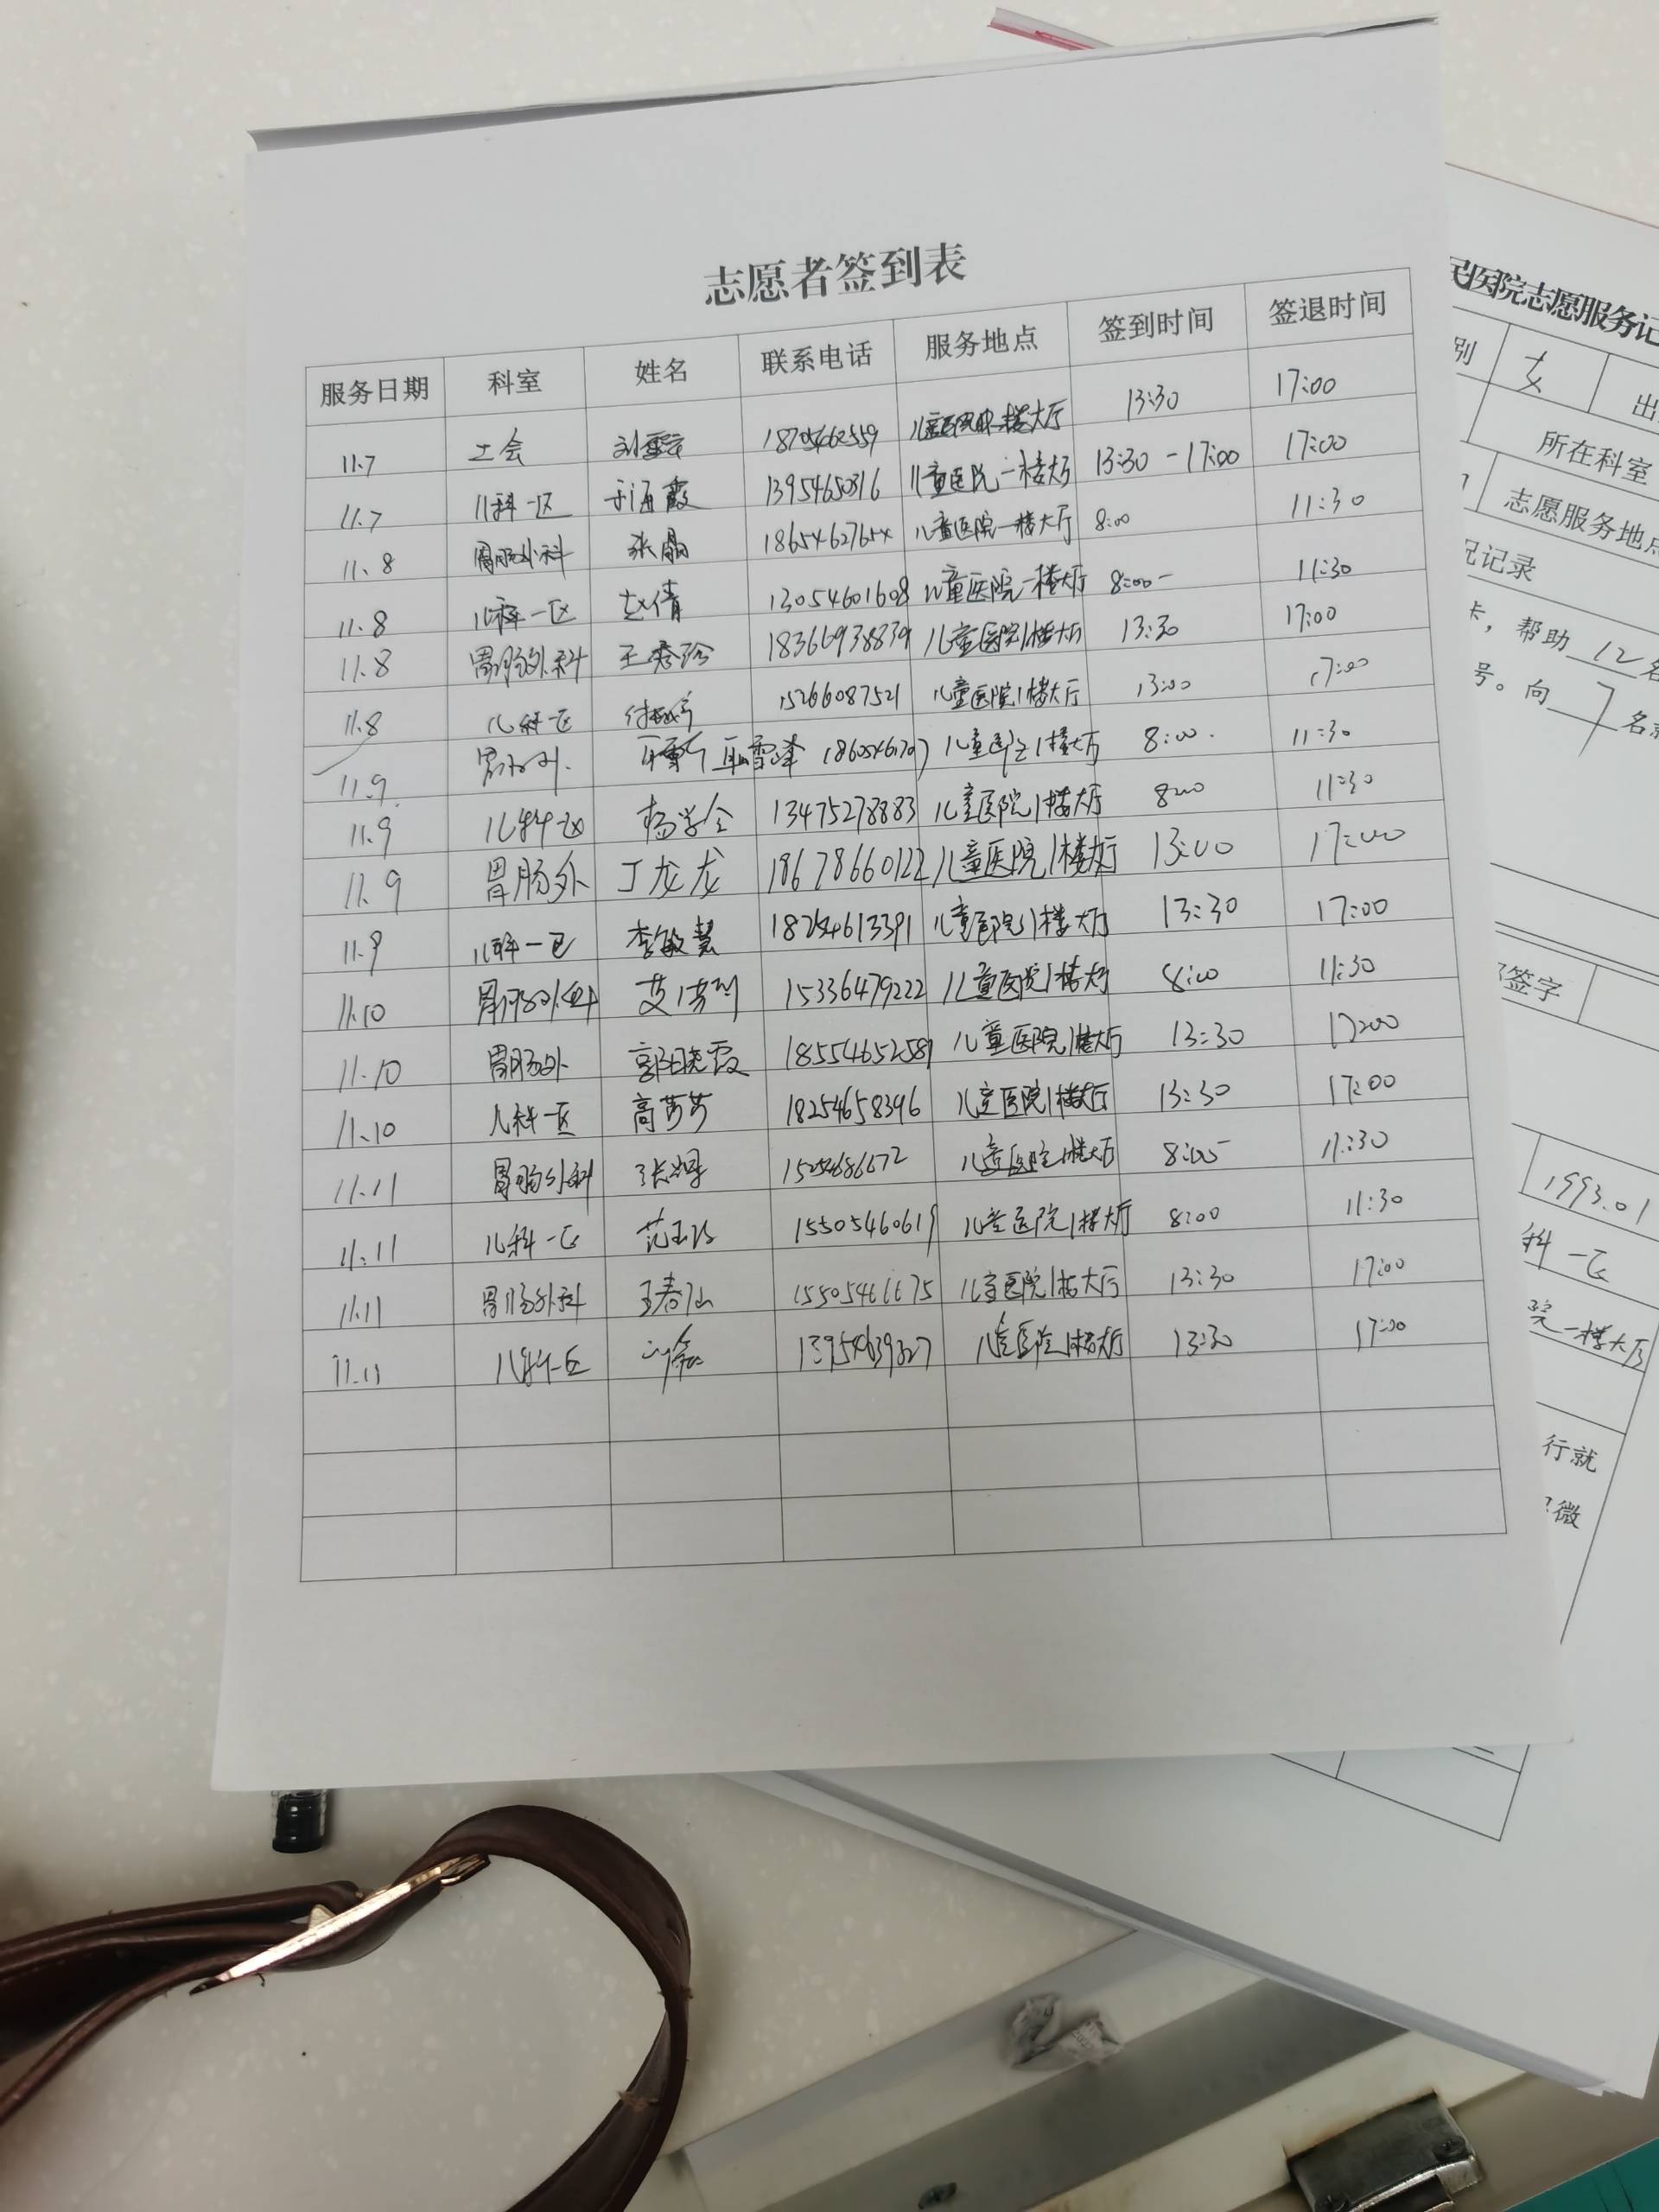 志愿者签到表
服务日期 科室 姓名 联系电话 服务地点 签到时间 签退时间
11.7 工会 1一楼大厅 13:30 17:00
11.7 儿科一区 于海霞 13954650816 儿童医院一楼大厅 13:30-17:00 17:00
11.8 胃肠外科 张晶 儿童医院一楼大厅 8:00 11:30
11.8 儿科一区 赵倩 13054601608 儿童医院一楼大厅 8:00- 11:30
11.8 胃肠外科 王秀玲 18366938839 儿童医院1楼大厅 13:30 17:00
11.8 儿科一区 15266087521 儿童医院1楼大厅 13:00 17:00
11.9 胃肠外 耿雪峰 儿童医院1楼大厅 8:00 11:30
11.9 儿科一区 杨学全 13475278883 儿童医院1楼大厅 8:00 11:30
11.9 胃肠外 丁龙龙 18678660122 儿童医院1楼大厅 13:00 17:00
11.9 儿科一区 李敏慧 18254613391 儿童医院1楼大厅 13:30 17:00
11.10 胃肠外科 15336479222 儿童医院1楼大厅 8:00 11:30
11.10 胃肠外 郭晓霞 18554652589 儿童医院1楼大厅 13:30 17:00
11.10 儿科一区 高芳芳 18254658396 儿童医院1楼大厅 13:30 17:00
11.11 胃肠外科 儿童医院1楼大厅 8:00 11:30
11.11 儿科一区 15505460619 儿童医院1楼大厅 8:00 11:30
11.11 胃肠外科 王春仙 15505466675 儿童医院1楼大厅 13:30 17:00
11.11 儿科一区 儿童医院1楼大厅 13:30 17:00
民医院志愿服务记
别 女 出
所在科室
志愿服务地点
况记录
卡，帮助12名
号。向7名
签字
1993.01
科一区
院一楼大厅
行就
微